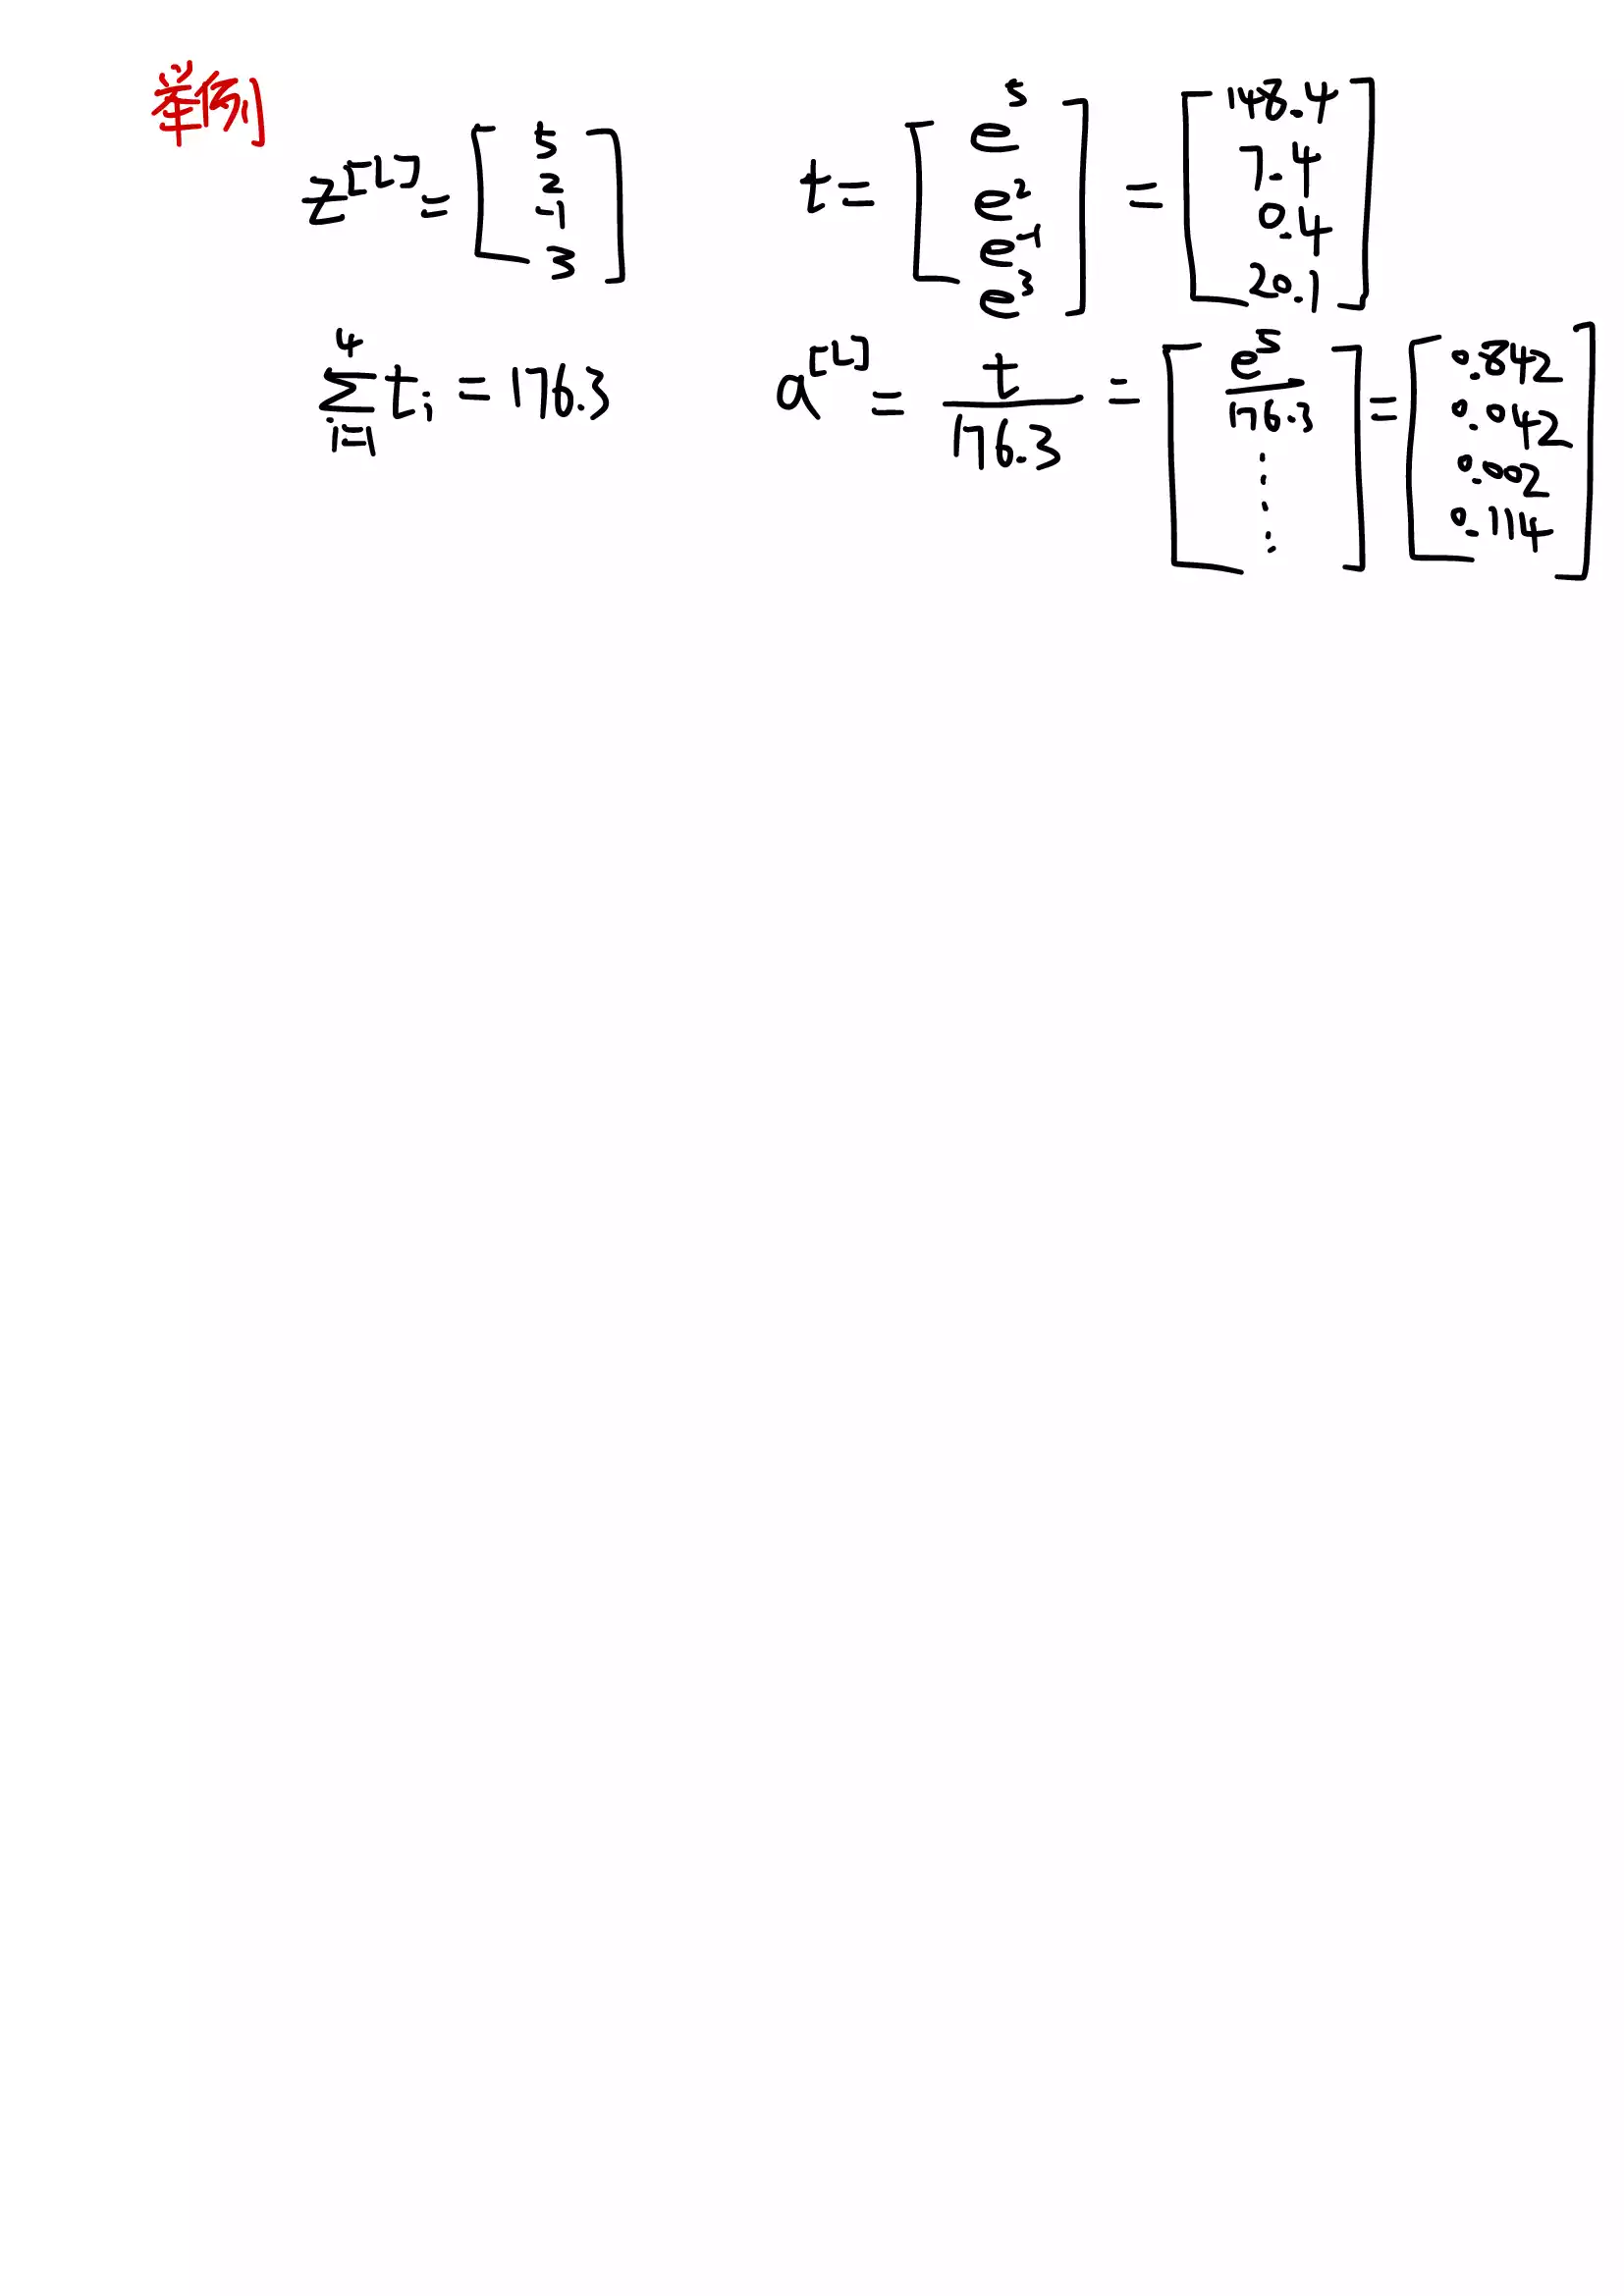 举例
z^[L] = [5 2 -1 3]
t = [e^5 e^2 e^-1 e^3] = [148.4 7.4 0.4 20.1]
∑_{i=1}^{4} t_i = 176.3
a^[L] = t/176.3 = [e^5/176.3 ⋮] = [0.842 0.042 0.002 0.114]